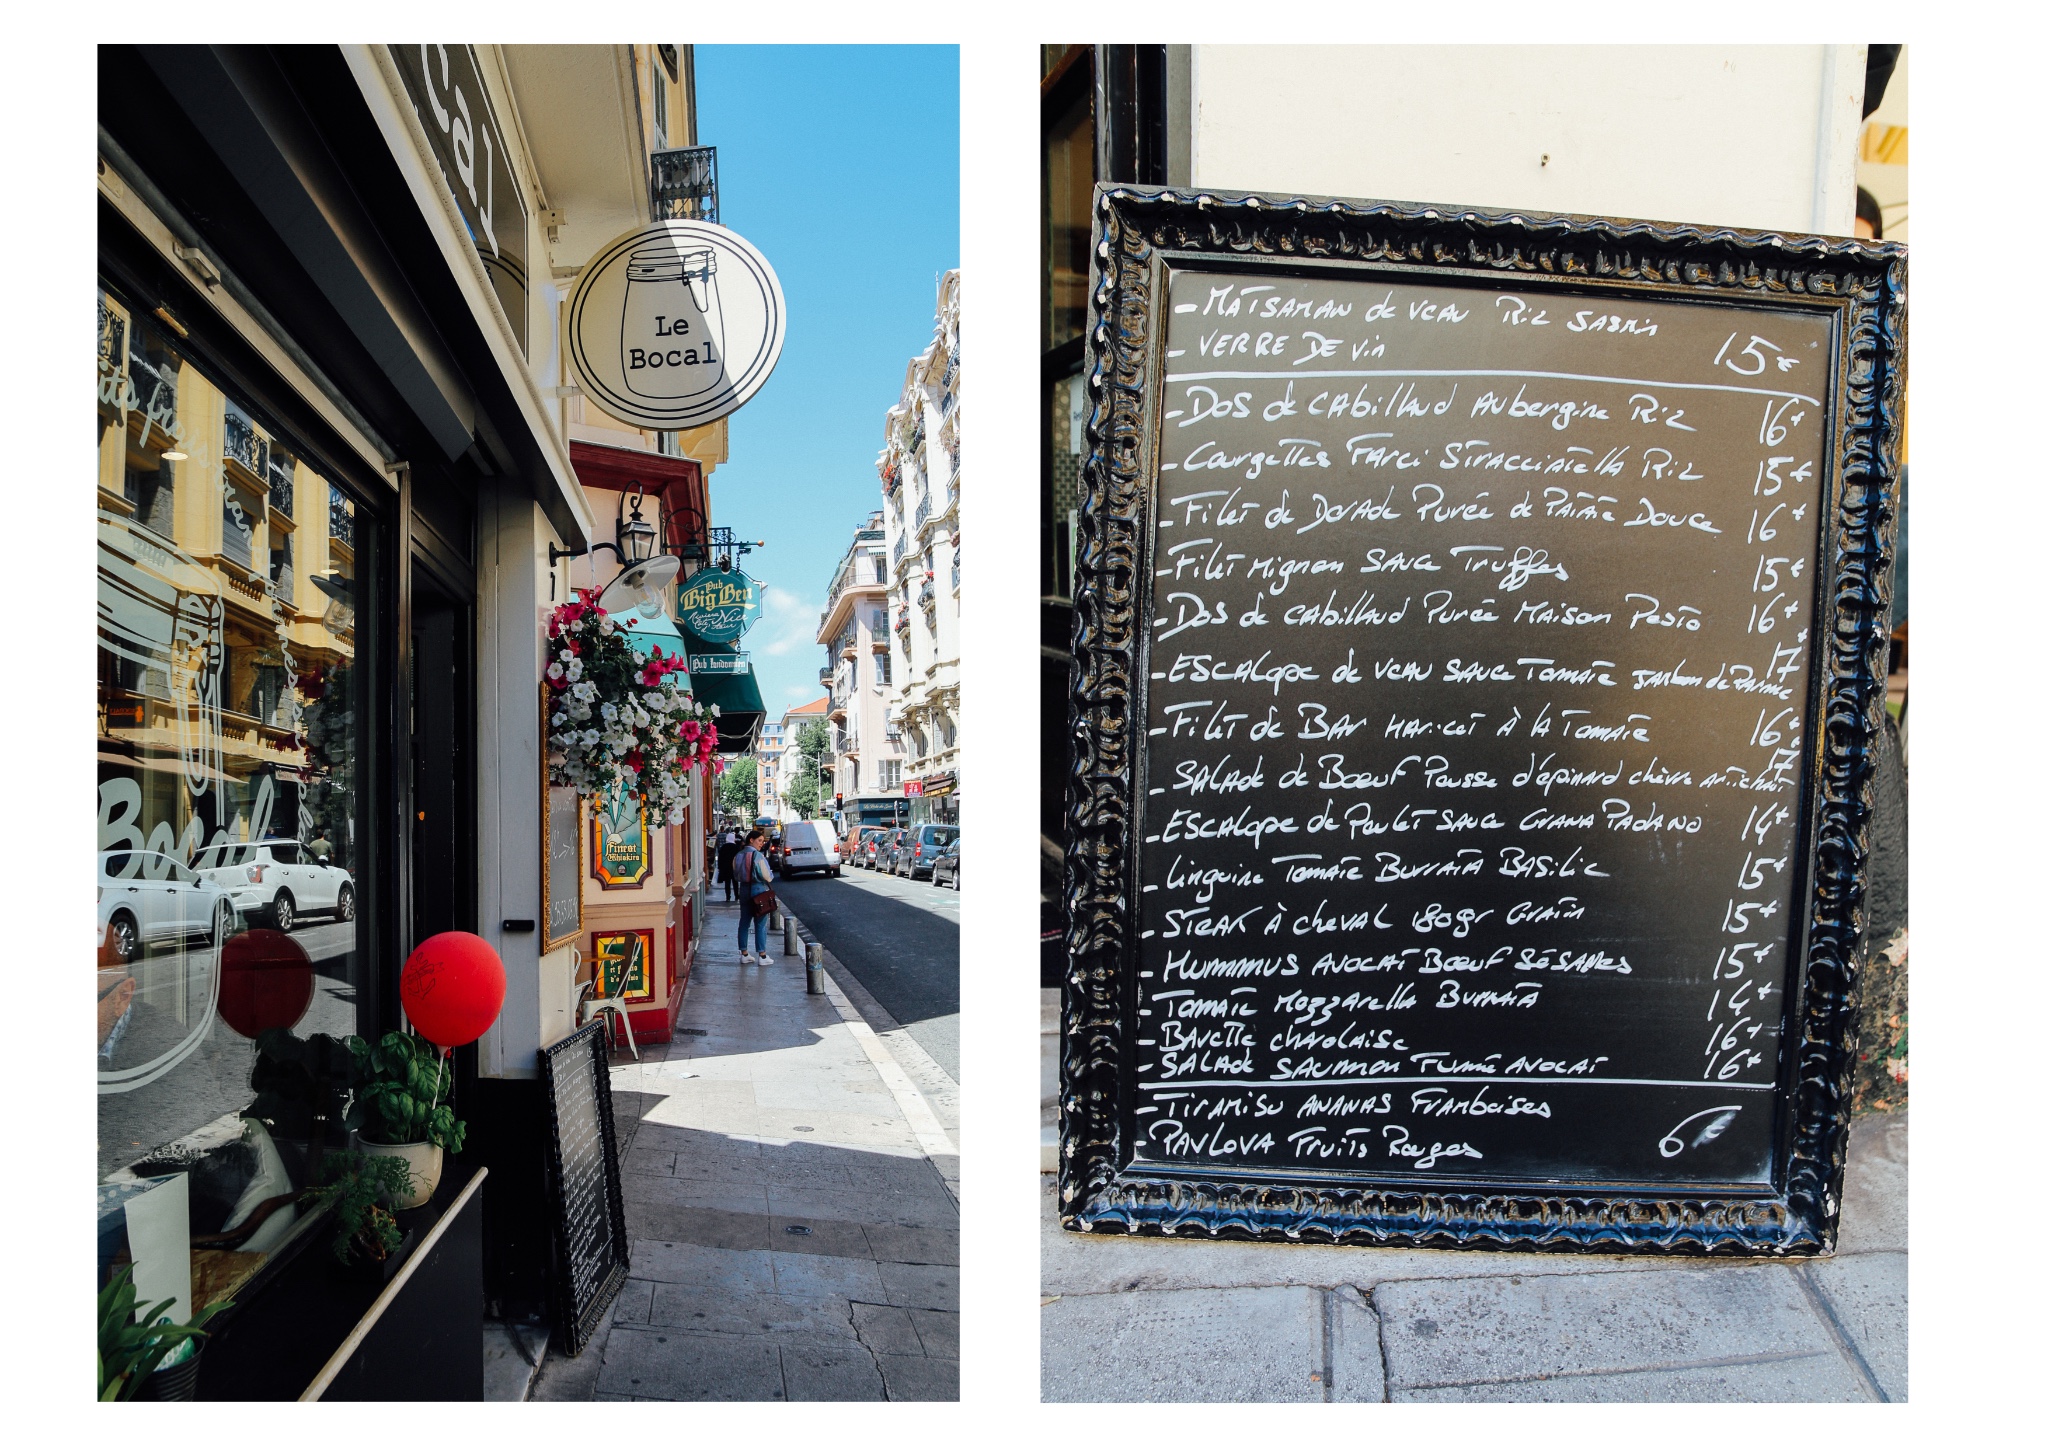 Cal
Le
Bocal
Pub
Big Ben
Nice
Pub londonnien
Finest
Whiskies
Bocal
- MATSAMAN de VEAU Riz JASMin
- VERRE DE Vin 15€
- DOS de CAbillAud AUbergine Riz 16€
- Courgettes FArci STracciatella Riz 15€
- Filet de DorAde Purée de PATATE Douce 16€
- Filet Mignon SAuce Truffes 15€
- Dos de CAbillAud Purée MAison Pesto 16€
- ESCAlope de VEAU SAuce TomATE JAmbon de PArme 17€
- Filet de BAr HAricot À lA TomATE 16€
- SALAde de BœuF Pousse d'épinard chèvre Artichaut 17€
- ESCAlope de Poulet SAuce GrANA PADANO 14€
- linguine TomATE BurrATA BASilic 15€
- STEAK À chevAL 180gr GrATin 15€
- HUMMUS AVOCAT BœuF SÉSAMES 15€
- TOMATE MozzArella BurrATA 14€
- BAvette charolaise 16€
- SALADE SAUMON Fumé AVOCAT 16€
- TiRAMiSU ANANAS FrAmboises
- PAVLOVA Fruits Rouges 6€